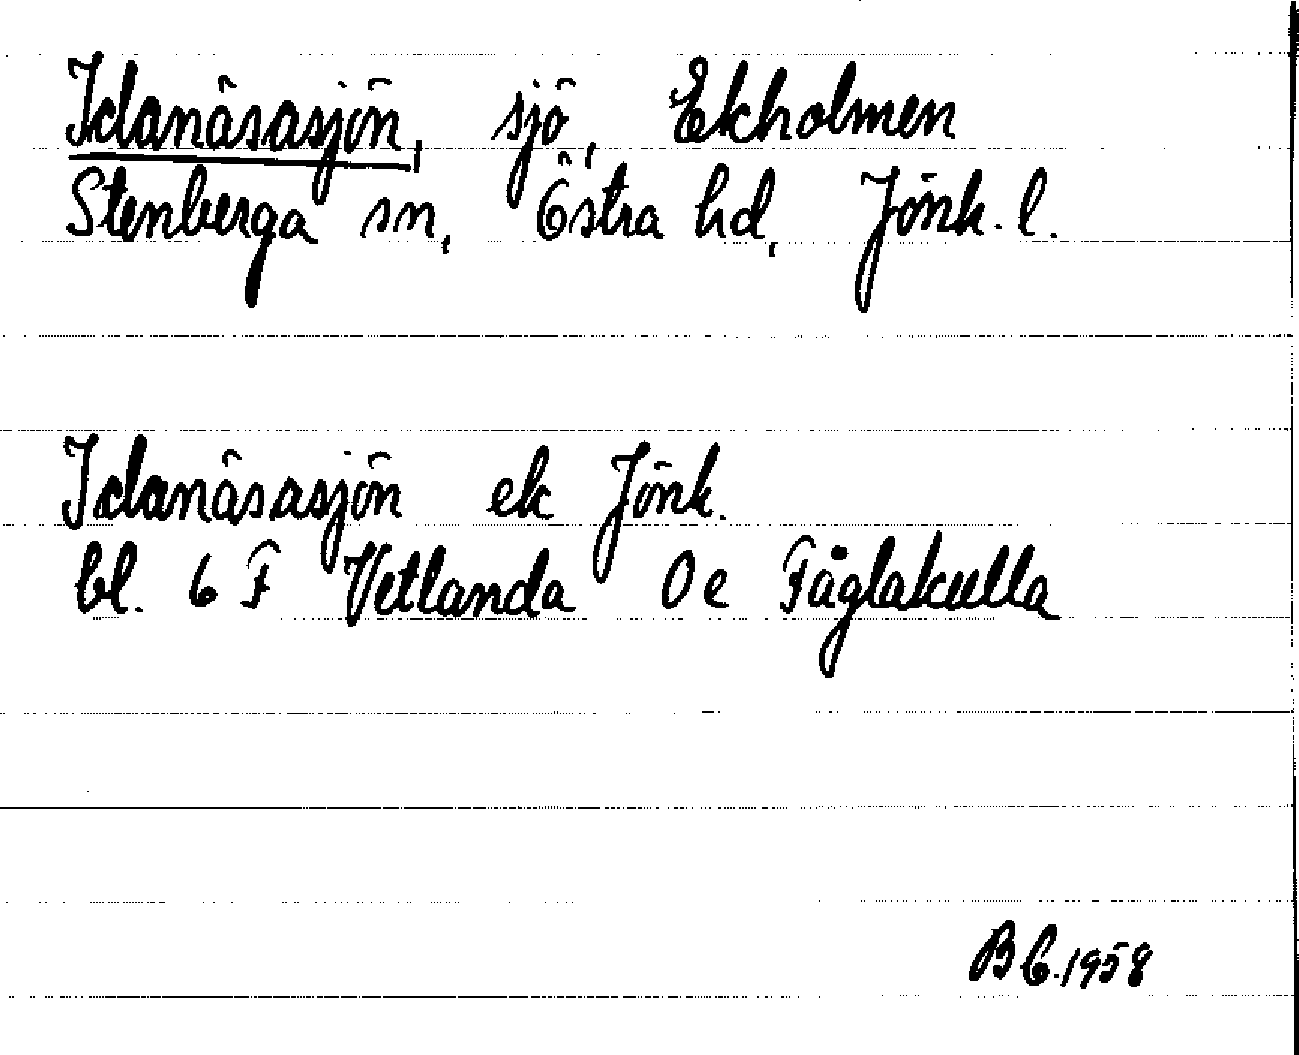 Idanäsasjön, sjö, Ekholmen
Stenberga sn, Östra hd, Jönk. l.
Idanäsasjön ek Jönk.
bl. 6 F Vetlanda 0 e Fåglakulla
BC.1958